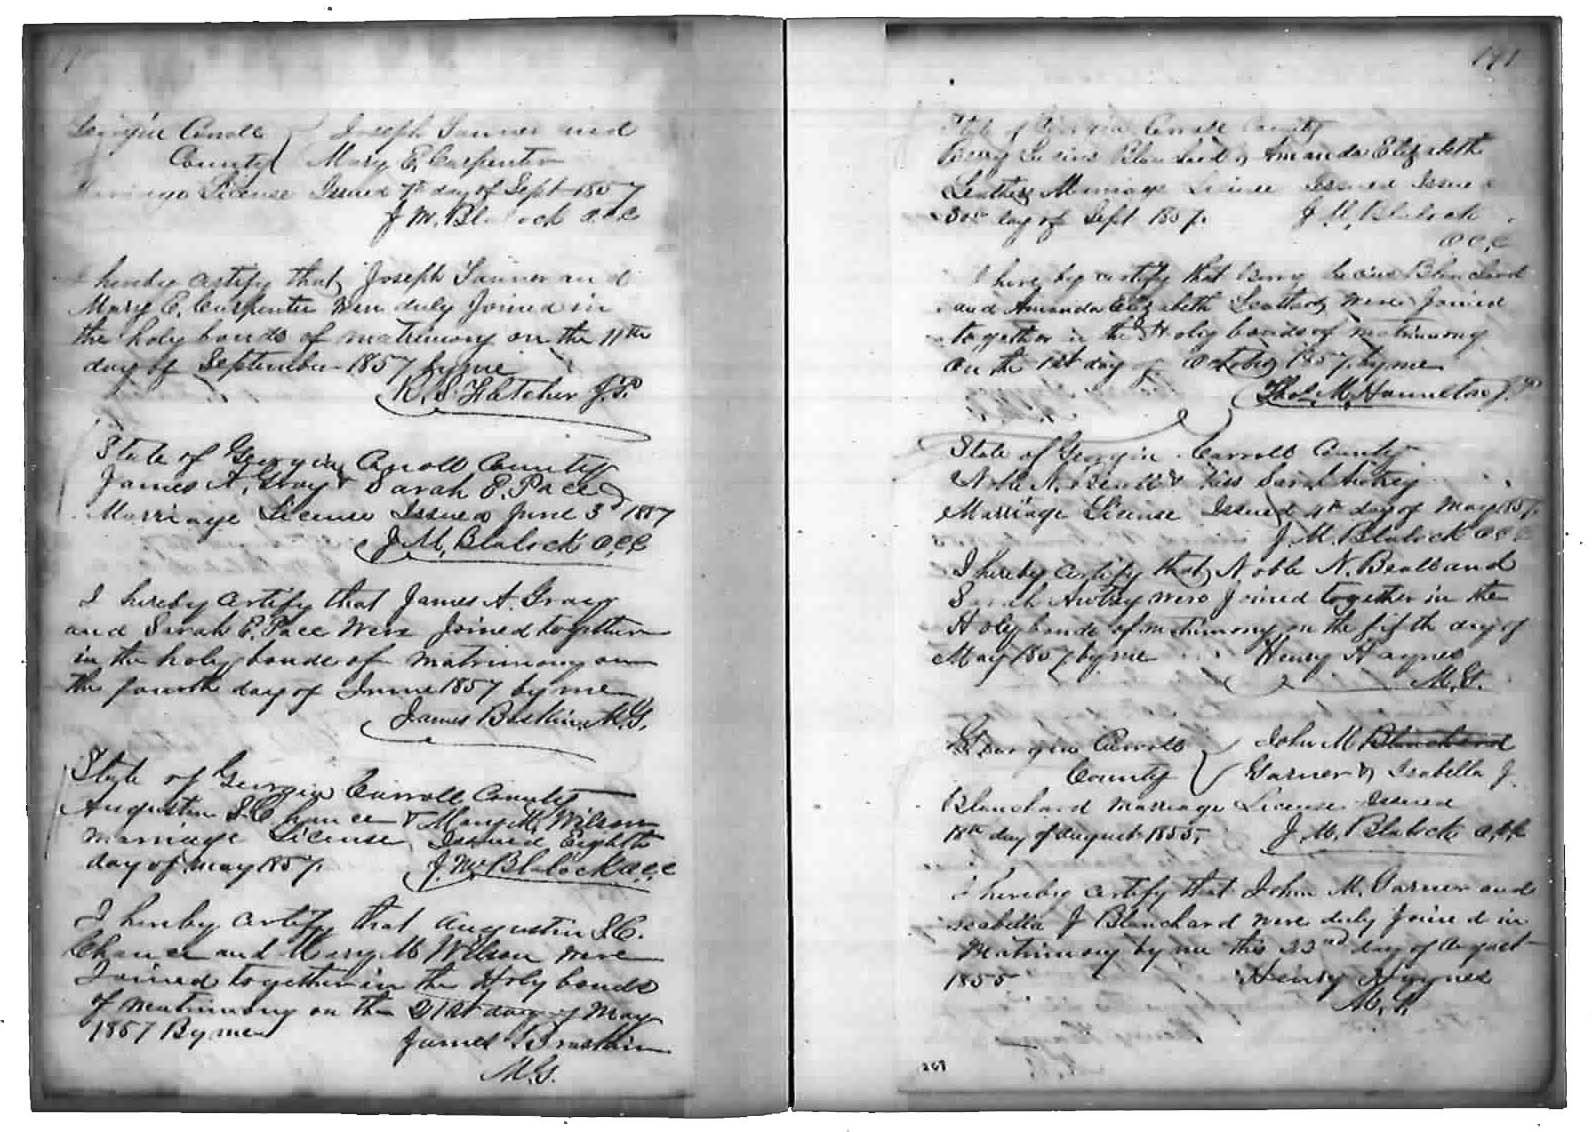 Georgia Carroll Joseph Tanner and
County Mary E. Carpenter
Marriage License Issued 7th day of Sept 1857
J M. Blalock O.C.C
I hereby certify that Joseph Tanner and
Mary E. Carpenter were duly Joined in
the holy bonds of matrimony on the 11th
day of September 1857 by me
R. S. Fletcher J.P.
State of Georgia Carroll County
James A. Gray & Sarah E. Pace
Marriage License Issued June 3d 1857
J. M. Blalock O.C.C
I hereby certify that James A. Gray
and Sarah E. Pace were Joined together
in the holy bonds of matrimony on
the fourth day of June 1857 by me
James Baskin M.G.
State of Georgia Carroll County
Augustin S. C. Chance & Mary M. Wilson
Marriage License Issued Eighth
day of May 1857.
J. M. Blalock O.C.C
I hereby certify that Augustin S. C.
Chance and Mary M Wilson were
Joined together in the Holy bonds
of matrimony on the 21st day of May
1857 By me
James Baskin
M.G.
191
State of Georgia Carroll County
Berry Blanchard & Amanda Elizabeth
Marriage License Issued Issued
30th day of Sept 1857. J. M. Blalock
O.C.C
I hereby certify that Berry Blanchard
and Amanda Elizabeth were Joined
together in the Holy bonds of matrimony
on the 1st day of October 1857, by me
Thos. M. Hamilton J.P
State of Georgia Carroll County
Noble N. Beall & Miss Sarah Autrey
Marriage License Issued 4th day of May 1857.
J. M. Blalock O C C
I hereby certify that Noble N. Beall and
Sarah Autrey were Joined together in the
Holy bonds of matrimony on the fifth day of
May 1857 by me Henry Haynes
M.G.
Georgia Carroll John M Blanchard
County Garner & Isabella J.
Blanchard marriage License Issued
18th day of August 1855. J. M. Blalock O.C.C
I hereby certify that John M. Garner and
Isabella J Blanchard were duly Joined in
Matrimony by me this 23nd day of August
1855 Henry Haynes
M.G.
207